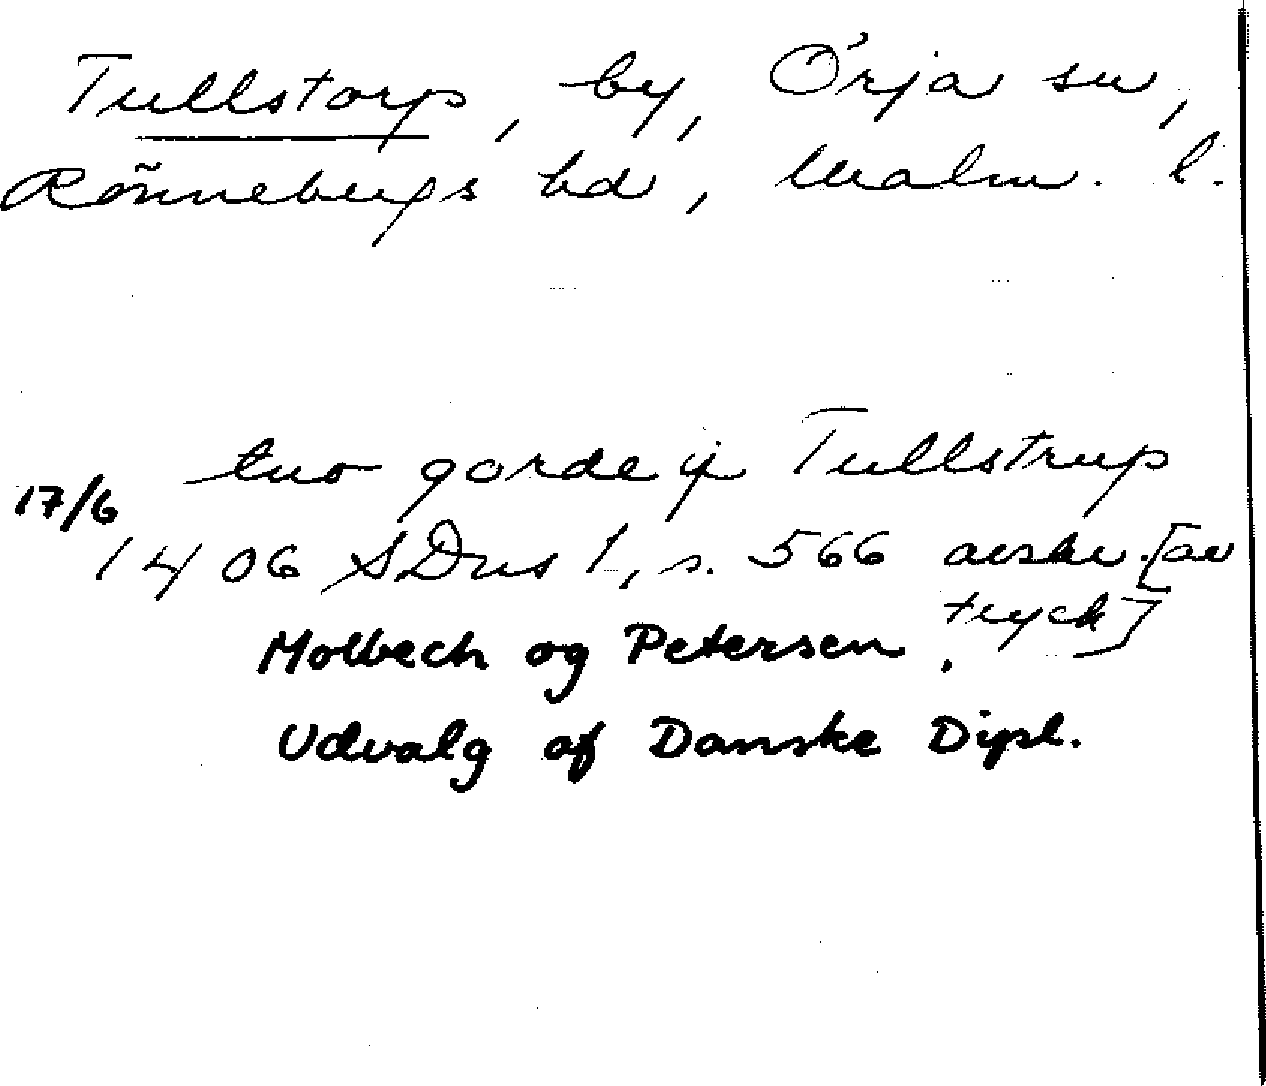 Tullstorp, by, Örja sn,
Rönnebergs hd, Malm. l.
tuo gorde ij Tullstrup
17/6
1406 SDns 1, s. 566 avskr. [av
tryck]
Molbech og Petersen.
Udvalg af Danske Dipl.